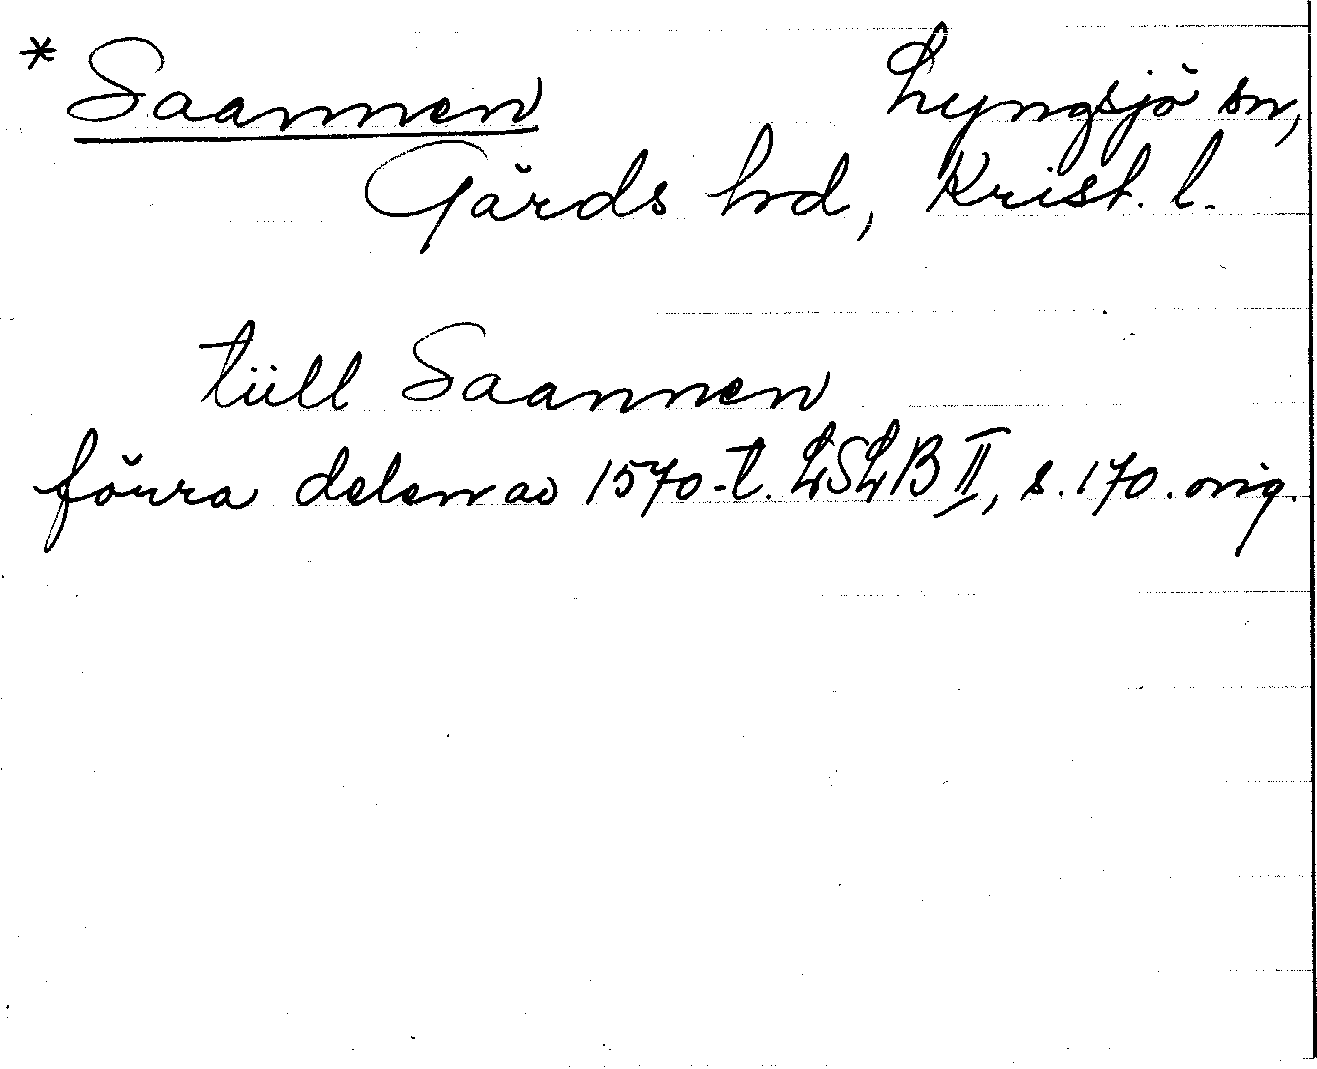 * Saannen Lyngsjö sn,
Gärds hd, Krist. l.
tüll Saannen
förra delen av 1570-t. LSLB II, s. 170. orig.